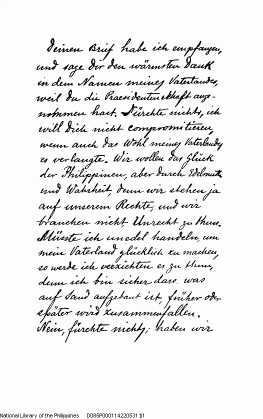 Deinen Brief habe ich empfangen,
und sage dir den wärmsten Dank
in dem Namen meines Vaterlandes,
weil du die Praesidentenschaft ange-
nommen hast. Fürchte nichts, ich
will Dich nicht compromitiren,
wenn auch das Wohl meines Vaterlandes
es verlangte. Wir wollen das Glück
der Philippinen, aber durch Edelmuth
und Wahrheit, denn wir stehen ja
auf unserem Rechte, und wir
brauchen nicht Unrecht zu thun.
Müsste ich unedel handeln, um
mein Vaterland glücklich zu machen,
so werde ich verzichten es zu thun,
denn ich bin sicher dass was
auf Sand aufgebaut ist früher oder
später wird zusammenfallen.
Nein, fürchte nichts; haben wir
National Library of the Philippines